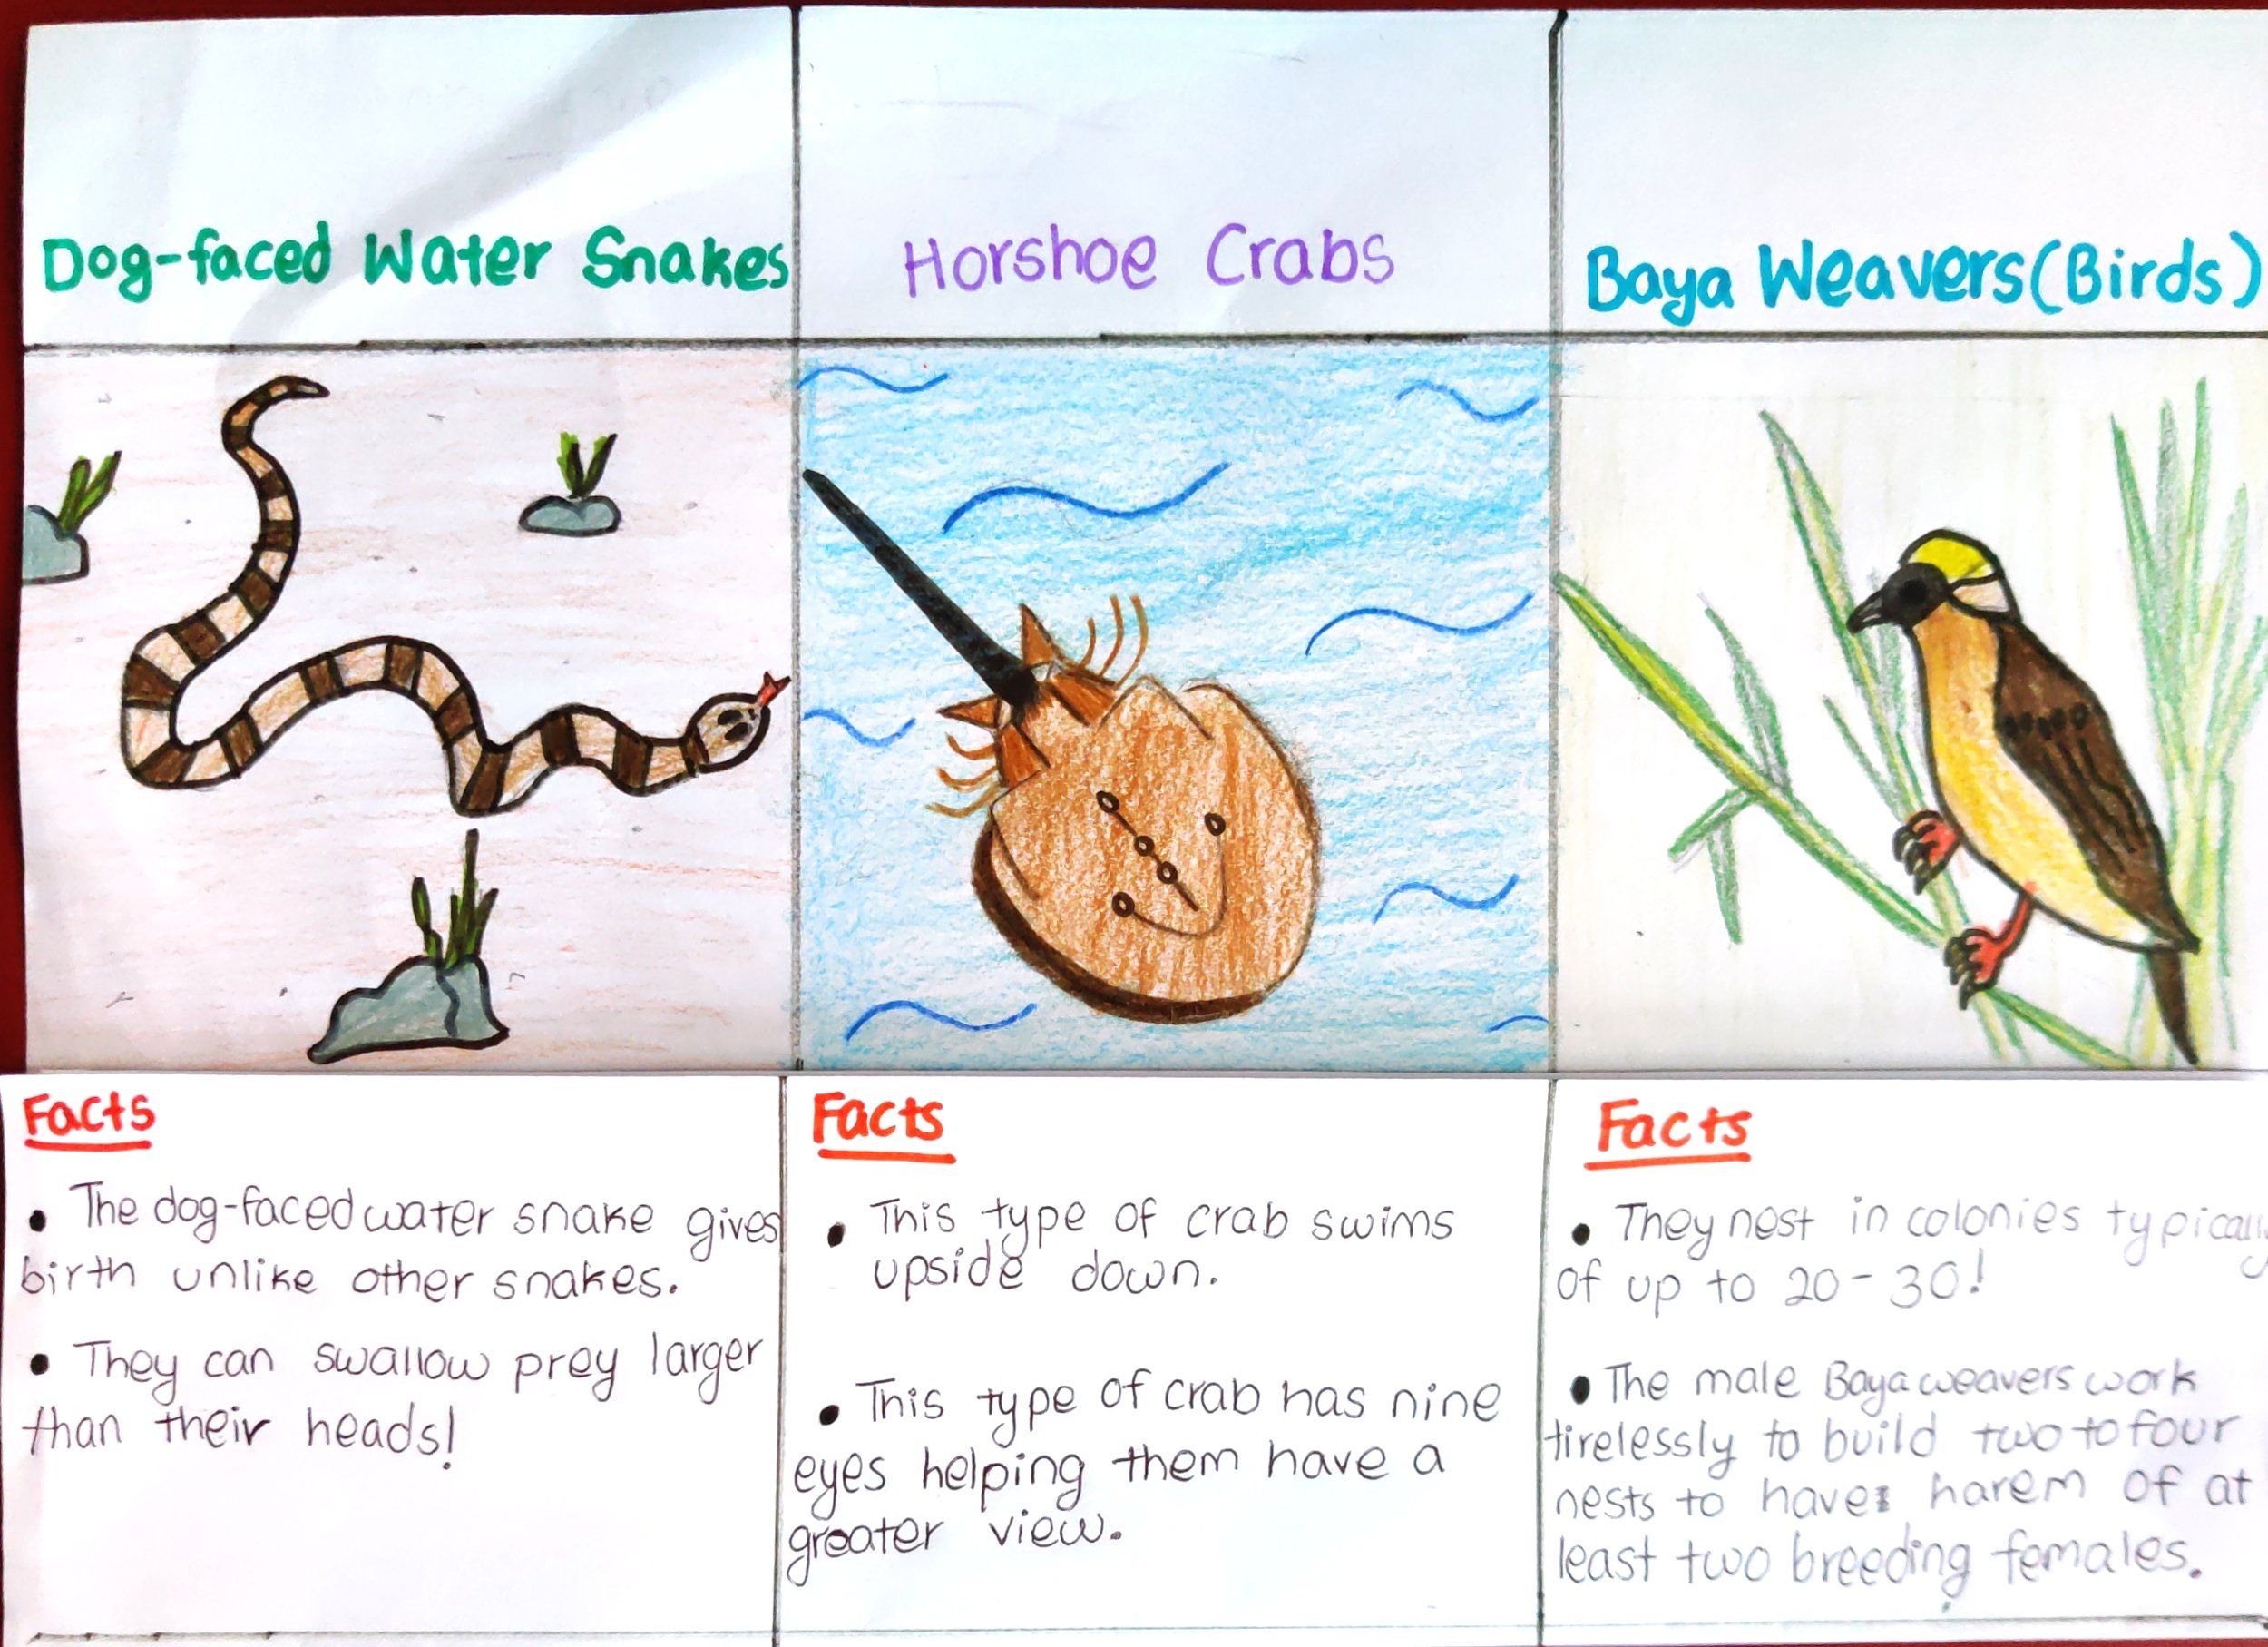 Dog-faced Water Snakes
Horshoe Crabs
Baya Weavers(Birds)
Facts
• The dog-faced water snake gives
birth unlike other snakes.
• They can swallow prey larger
than their heads!
Facts
• This type of crab swims
upside down.
• This type of crab has nine
eyes helping them have a
greater view.
Facts
• They nest in colonies typically
of up to 20-30!
• The male Baya weavers work
tirelessly to build two to four
nests to have harem of at
least two breeding females.